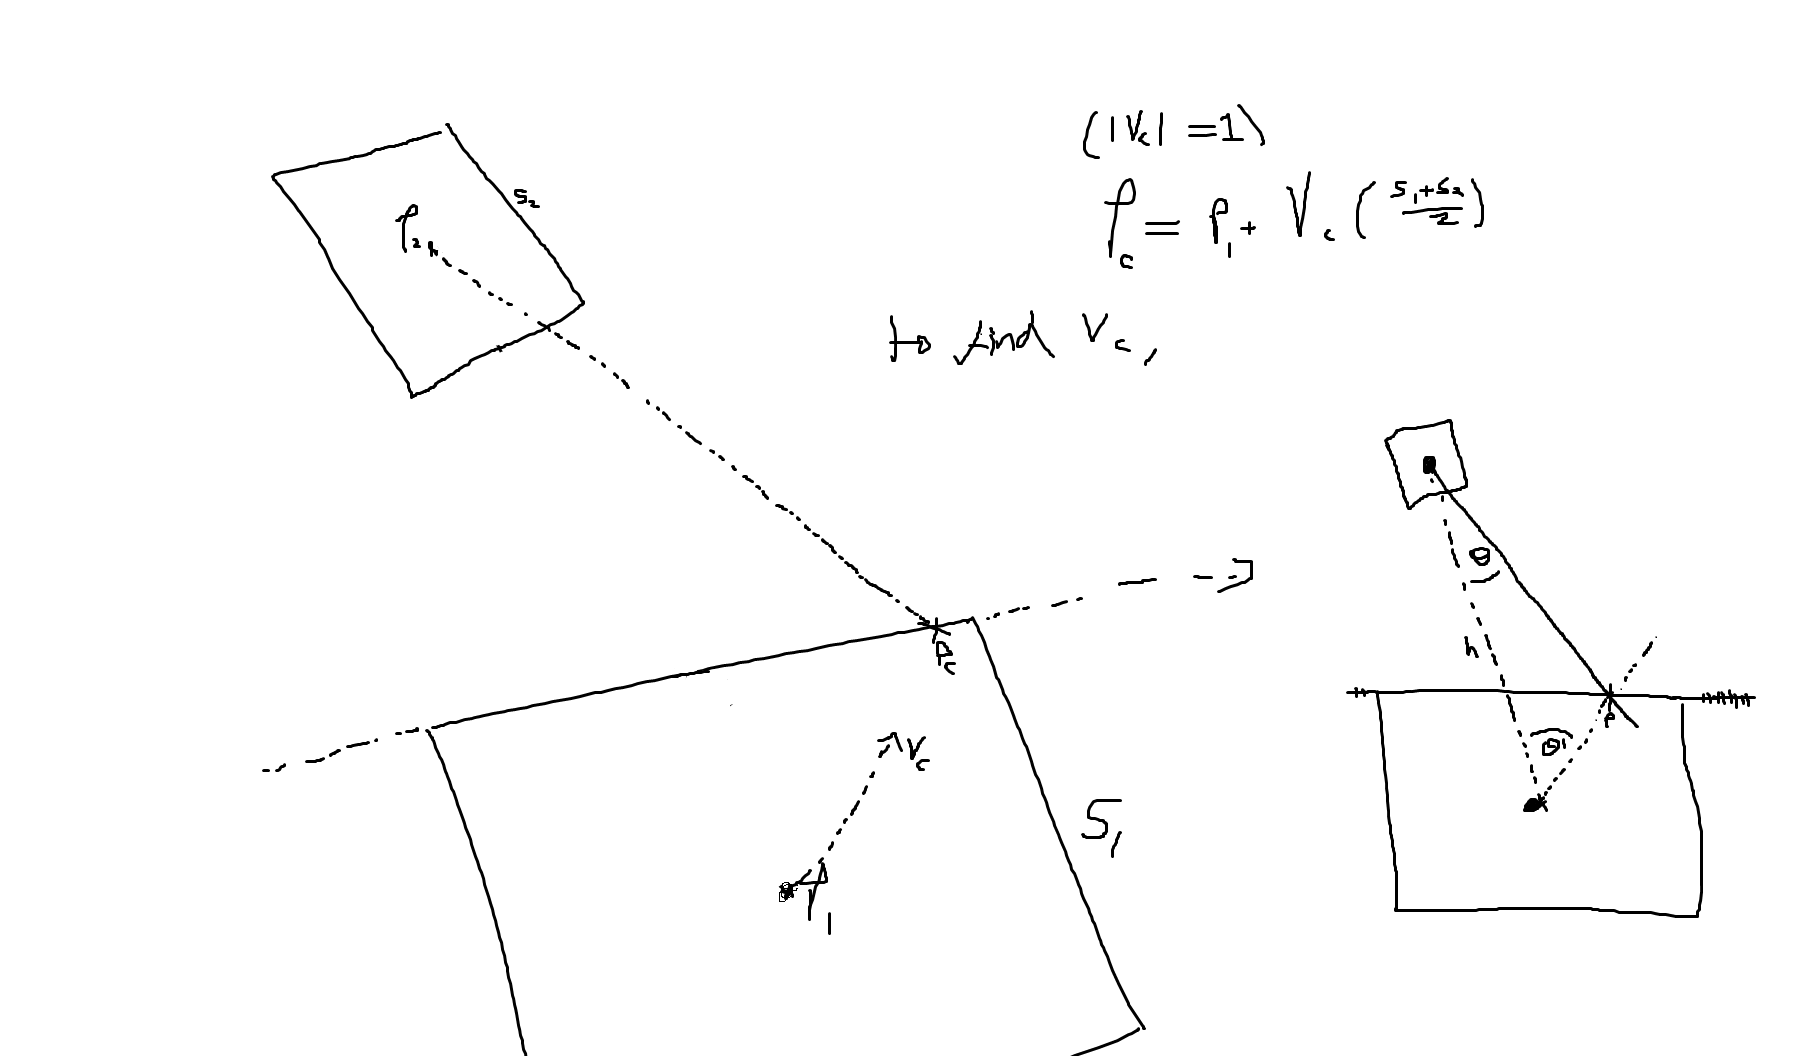 (|Vc| = 1)
Pc = P1 + Vc (S1+S2/2)
to find Vc,
S2
P2
Pc
Vc
S1
P1
θ
h
P
θ'